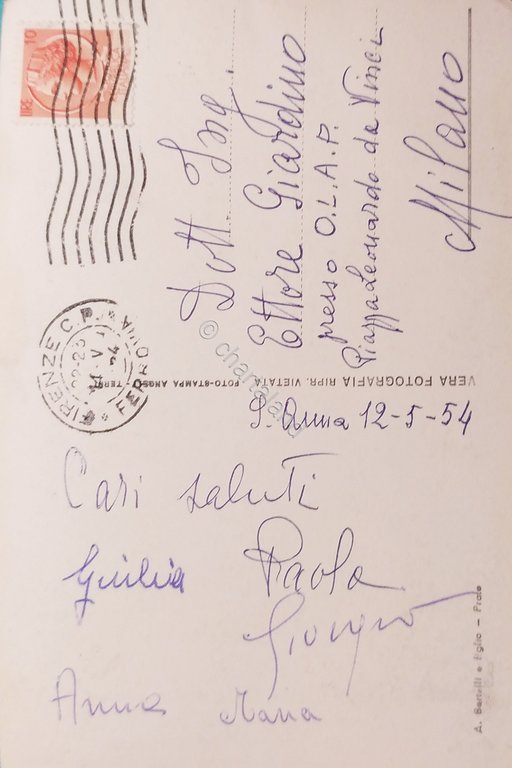 LIRE 10
FIRENZE C.P.
22-23
Dott. Ing.
Ettore Giardino
presso O.L.A.P.
Piazza Leonardo da Vinci
Milano
VERA FOTOGRAFIA RIPR. VIETATA FOTO-STAMPA TERNI
S. Anna 12-5-54
Cari saluti
Giulia Paola
Giorgio
Anna Maria
A. Bartelli e Figlio - Prato